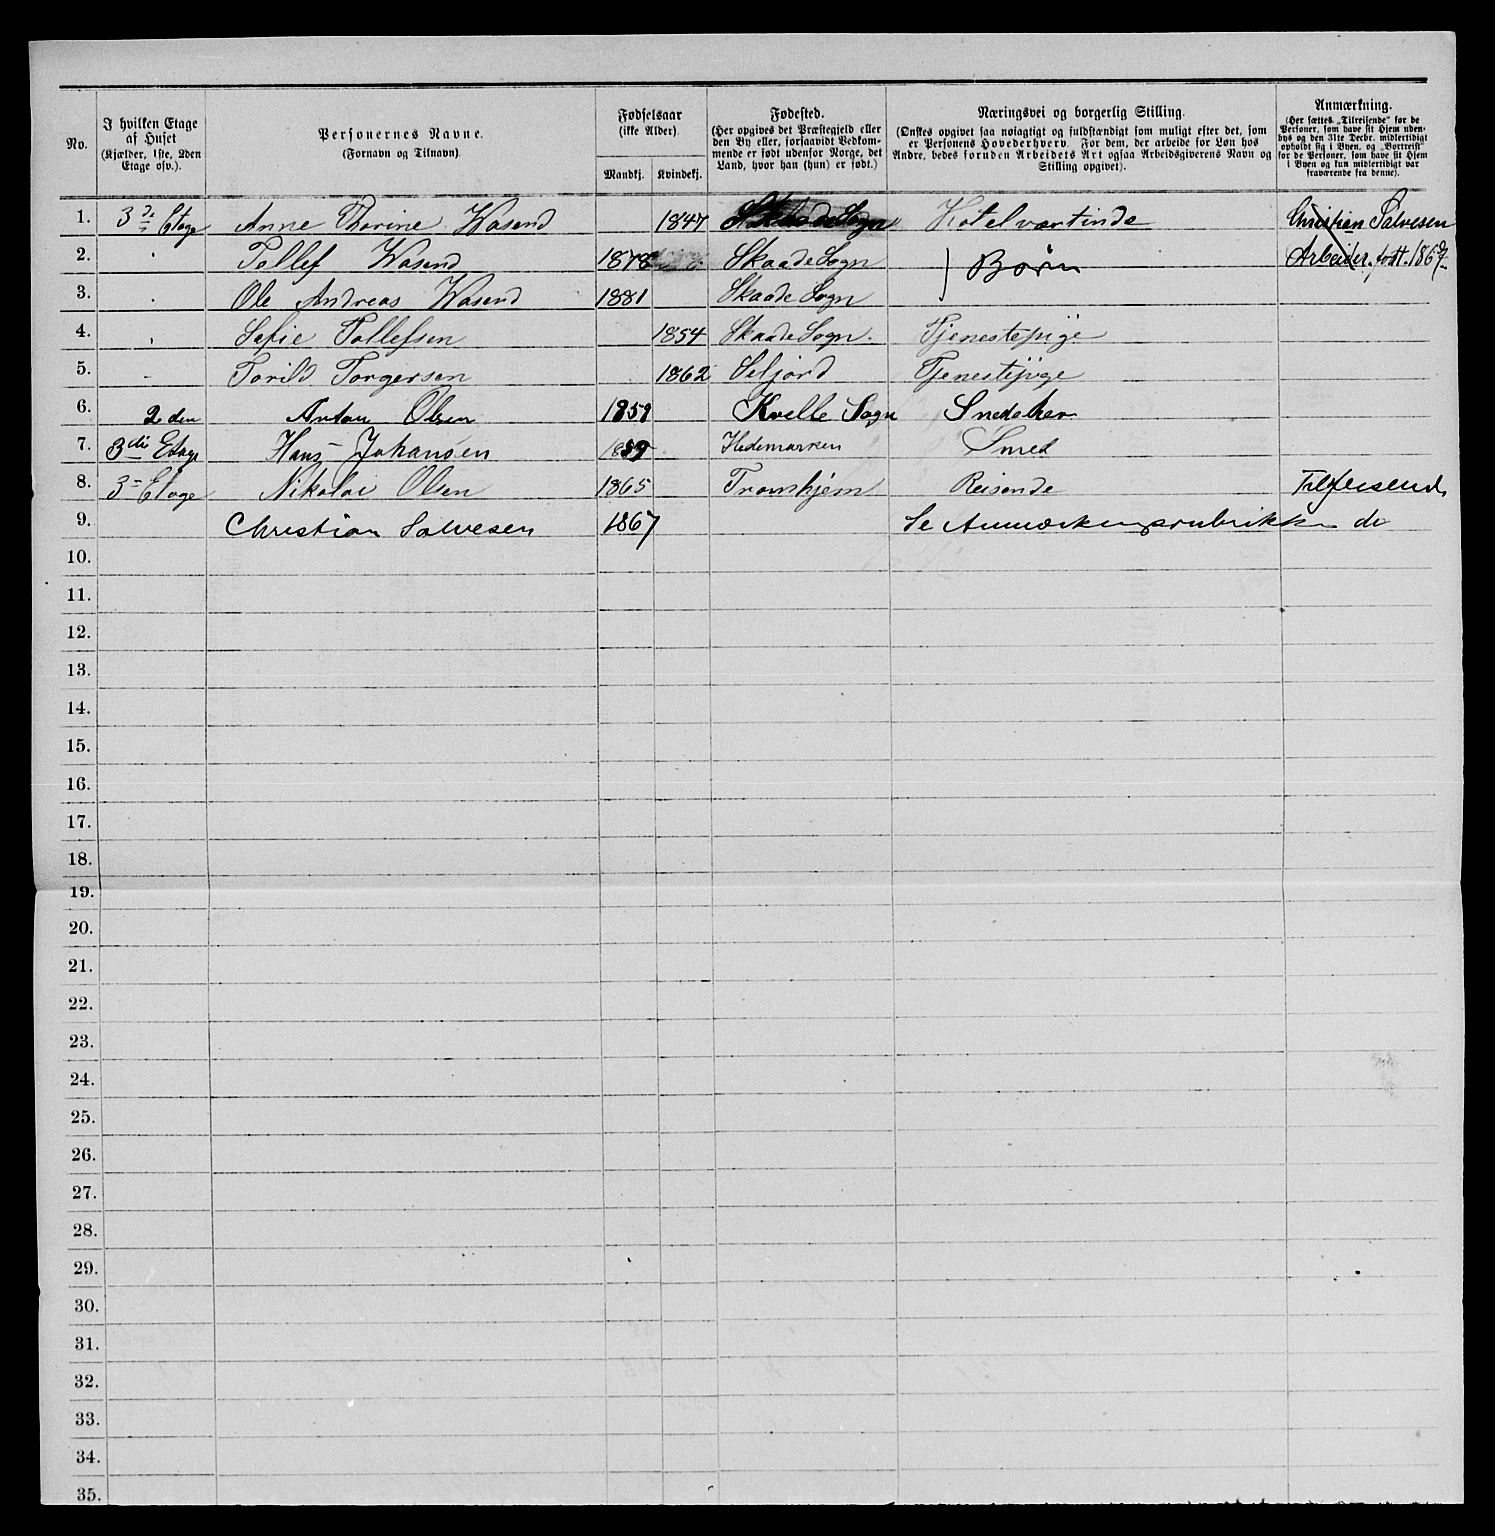 No.
I hvilken Etage af Huset (Kjælder, 1ste, 2den Etage osv.).
Personernes Navne. (Fornavn og Tilnavn)
Fødselsaar (ikke Alder)
Mandkj. Kvindekj.
Fødested. (Her opgives det Præstegjeld eller den By eller, forsaavidt Vedkommende er født udenfor Norge, det Land, hvor han (hun) er født.)
Næringsvei og borgerlig Stilling. (Ønskes opgivet saa nøiagtigt og fuldstændigt som muligt efter det, som er Personens Hovederhverv. For dem, der arbeide for Løn hos Andre, bedes foruden Arbeidets Art ogsaa Arbeidsgiverens Navn og Stilling opgivet).
Anmærkning. (Her sættes „Tilreisende" for de Personer, som have sit Hjem udenbys og den 31te Decbr. midlertidigt opholdt sig i Byen, og „Bortreist" for de Personer, som have sit Hjem i Byen og kun midlertidigt var fraværende fra denne).
1. 3die Etage Anne Thorine Wasend 1847 Skaade Sogn Hotelværtinde Christian Salvesen
2. " Tellef Wasend 1878 Skaade Sogn } Børn Arbeider, født. 1867
3. " Ole Andreas Wasend 1881 Skaade Sogn
4. " Sofie Tollefsen 1854 Skaade Sogn. Tjenestepige
5. " Torild Torgersen 1862 Seljord Tjenestepige
6. 2den Anton Olsen 1859 Kville Sogn Snedeker
7. 3die Etage Hans Johansen 1859 Hedemarken Smed
8. 3 Etage Nikolai Olsen 1865 Tromhjem Reisende Tilreisende
9. Christian Salvesen 1867 Se Anmærkningsrubrikken do
10.
11.
12.
13.
14.
15.
16.
17.
18.
19.
20.
21.
22.
23.
24.
25.
26.
27.
28.
29.
30.
31.
32.
33.
34.
35.